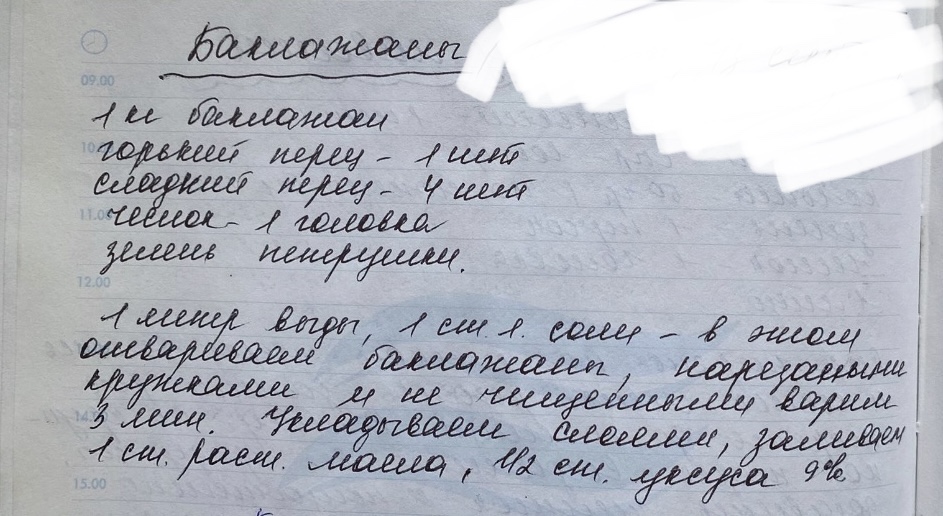 Баклажаны
09.00
1 кг баклажан
горький перец - 1 шт
сладкий перец - 4 шт
11.00
чеснок - 1 головка
зелень петрушки.
12.00
1 литр воды, 1 ст. л. соли - в этом
отвариваем баклажаны, нарезаными
кружками и не чищенными варим
3 мин. Укладываем слоями, заливаем
1 ст. раст. масла, 1/2 ст. уксуса 9%
15.00